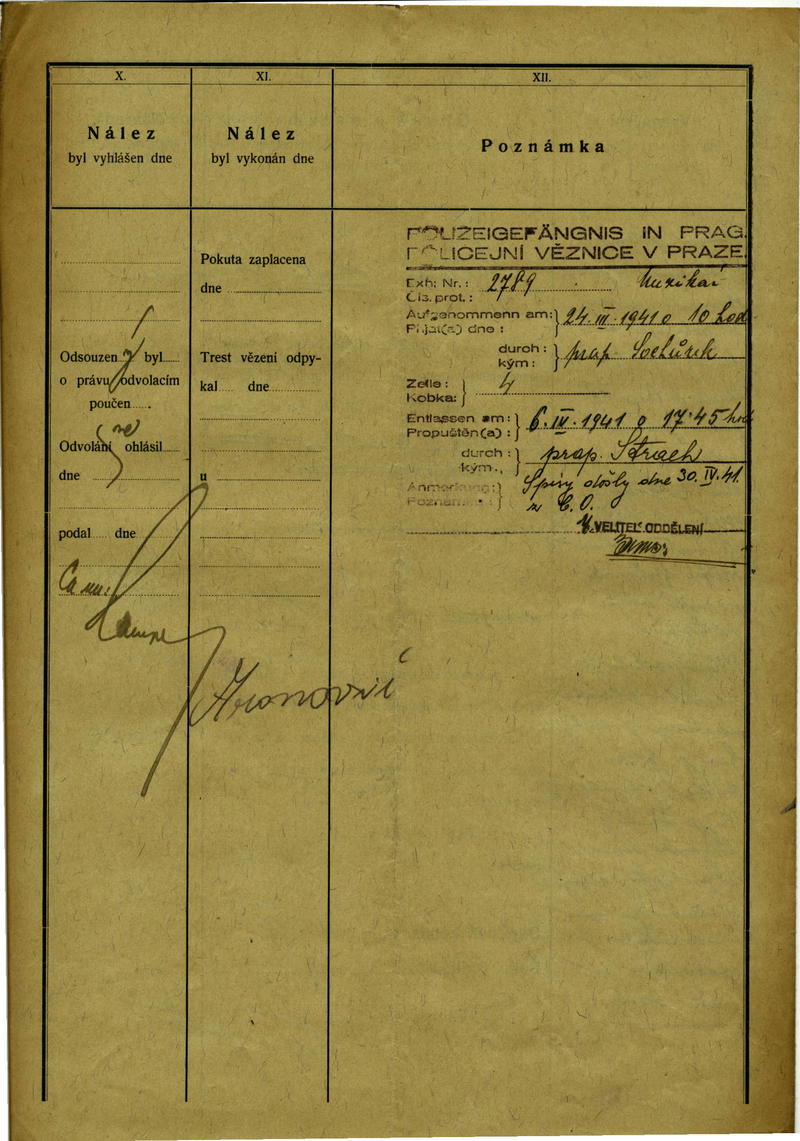 X.
Nález
byl vyhlášen dne
Odsouzen y byl
o právu odvolacím
poučen
Odvolání ne ohlásil
dne
podal dne
XI.
Nález
byl vykonán dne
Pokuta zaplacena
dne
Trest vězení odpy-
kal dne
u
Hronovní
XII.
Poznámka
POLIZEIGEFÄNGNIS IN PRAG.
POLICEJNÍ VĚZNICE V PRAZE.
Exh. Nr.: 2789
Čís. prot.:
Aufgenommenn am: 24. III. 1941 o 10 hod
Přijat(a) dne:
durch: prap. Sochůrek
kým:
Zelle: 4
Kobka:
Entlassen am: 6. IV. 1941 o 17.45 hod
Propuštěn(a):
durch: prap. Strach
kým.
Anmerkung: Spisy došly dne 30. IV. 41.
Poznám. z C. O.
VELITEL ODDĚLENÍ